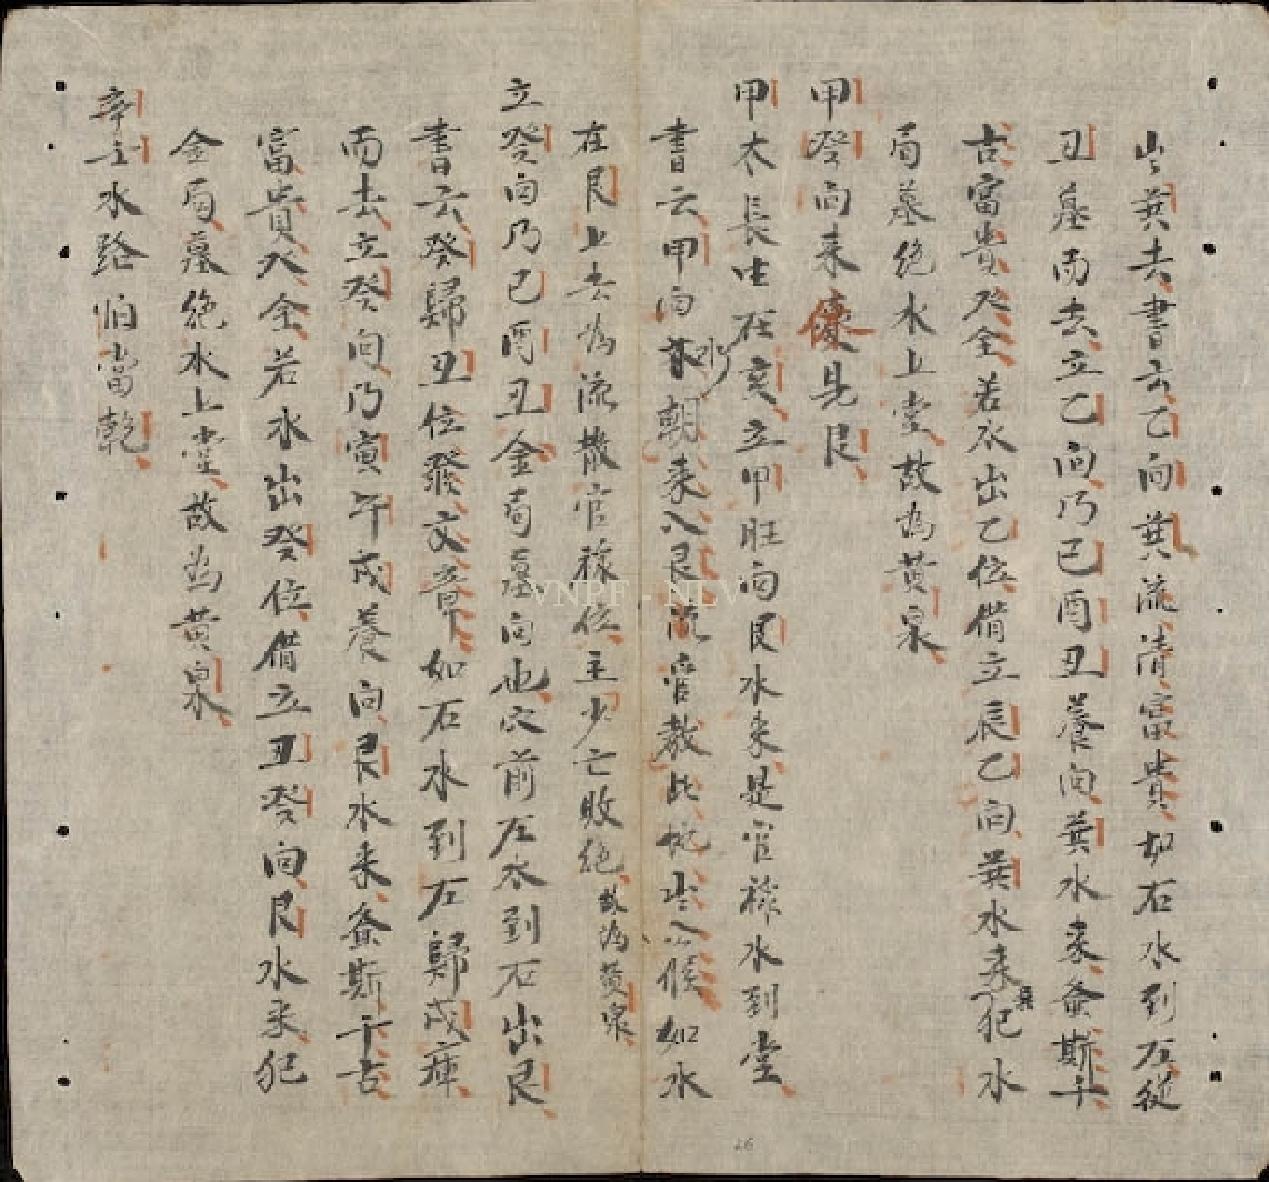 出巽去書云乙向巽流清富貴如右水到左從
丑墓而去立乙向乃巳酉丑養向巽水来螽斯千
古富貴双全若水出乙位借立辰乙向巽水来犯巽水
局墓絶水上堂故為黄泉
甲癸向来優見艮
甲木長生在亥立甲旺向艮水来是官祿水到堂
書云甲向水朝来入艮流官教此地出入候如水
在艮上去為流散官祿位主少亡敗絶故為黄泉
立癸向乃巳酉丑金局墓向也穴前左水到右出艮
書云癸歸丑位發文章如右水到左歸戌庫
而去立癸向乃寅午戌養向艮水来螽斯千古
富貴双全若水出癸位借立丑癸向艮水来犯
金局墓絶水上堂故為黄泉
辛壬水路怕當乾
VNPF - NLV
26